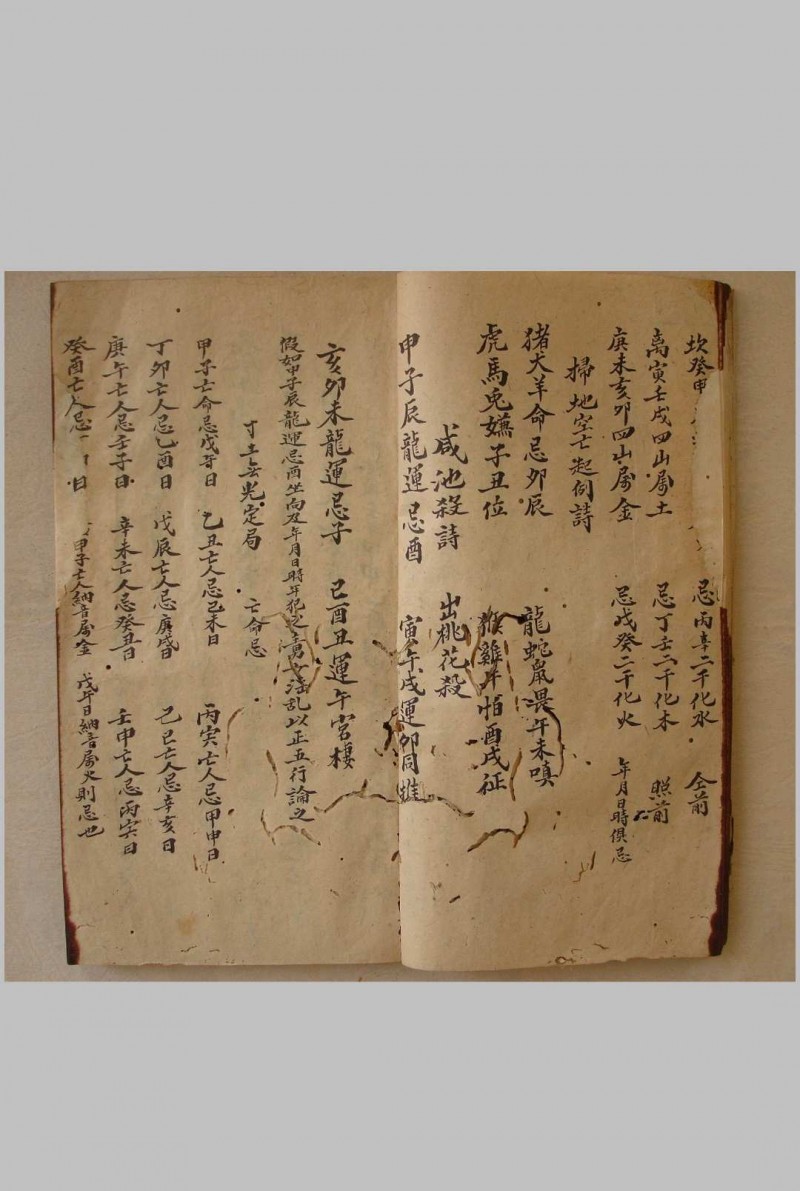 坎癸申 忌丙辛二干化水 仝前
离寅壬戌四山属土 忌丁壬二干化木 照前
庚未亥卯四山属金 忌戊癸二干化火 年月日時俱忌
掃地空亡起例詩
猪犬羊命忌卯辰 龍蛇鼠畏午未嗔
虎馬兎嫌子丑位 猴雞牛怕酉戌征
咸池殺詩 出桃花殺
申子辰龍運忌酉 寅午戌運卯同
亥卯未龍運忌子 巳酉丑運午宮棲
假如申子辰龍運忌酉坐向及年月日時年犯之男女淫乱以正五行論之
土無光定局 亡命忌
甲子亡命忌戊日 乙丑亡人忌己未日 丙寅亡人忌甲申日
丁卯亡人忌乙酉日 戊辰亡人忌庚戌日 己巳亡人忌辛亥日
庚午亡人忌壬子日 辛未亡人忌癸丑日 壬申亡人忌丙寅日
癸酉亡人忌 日 甲子亡人納音属金 戊午日納音属火則忌也